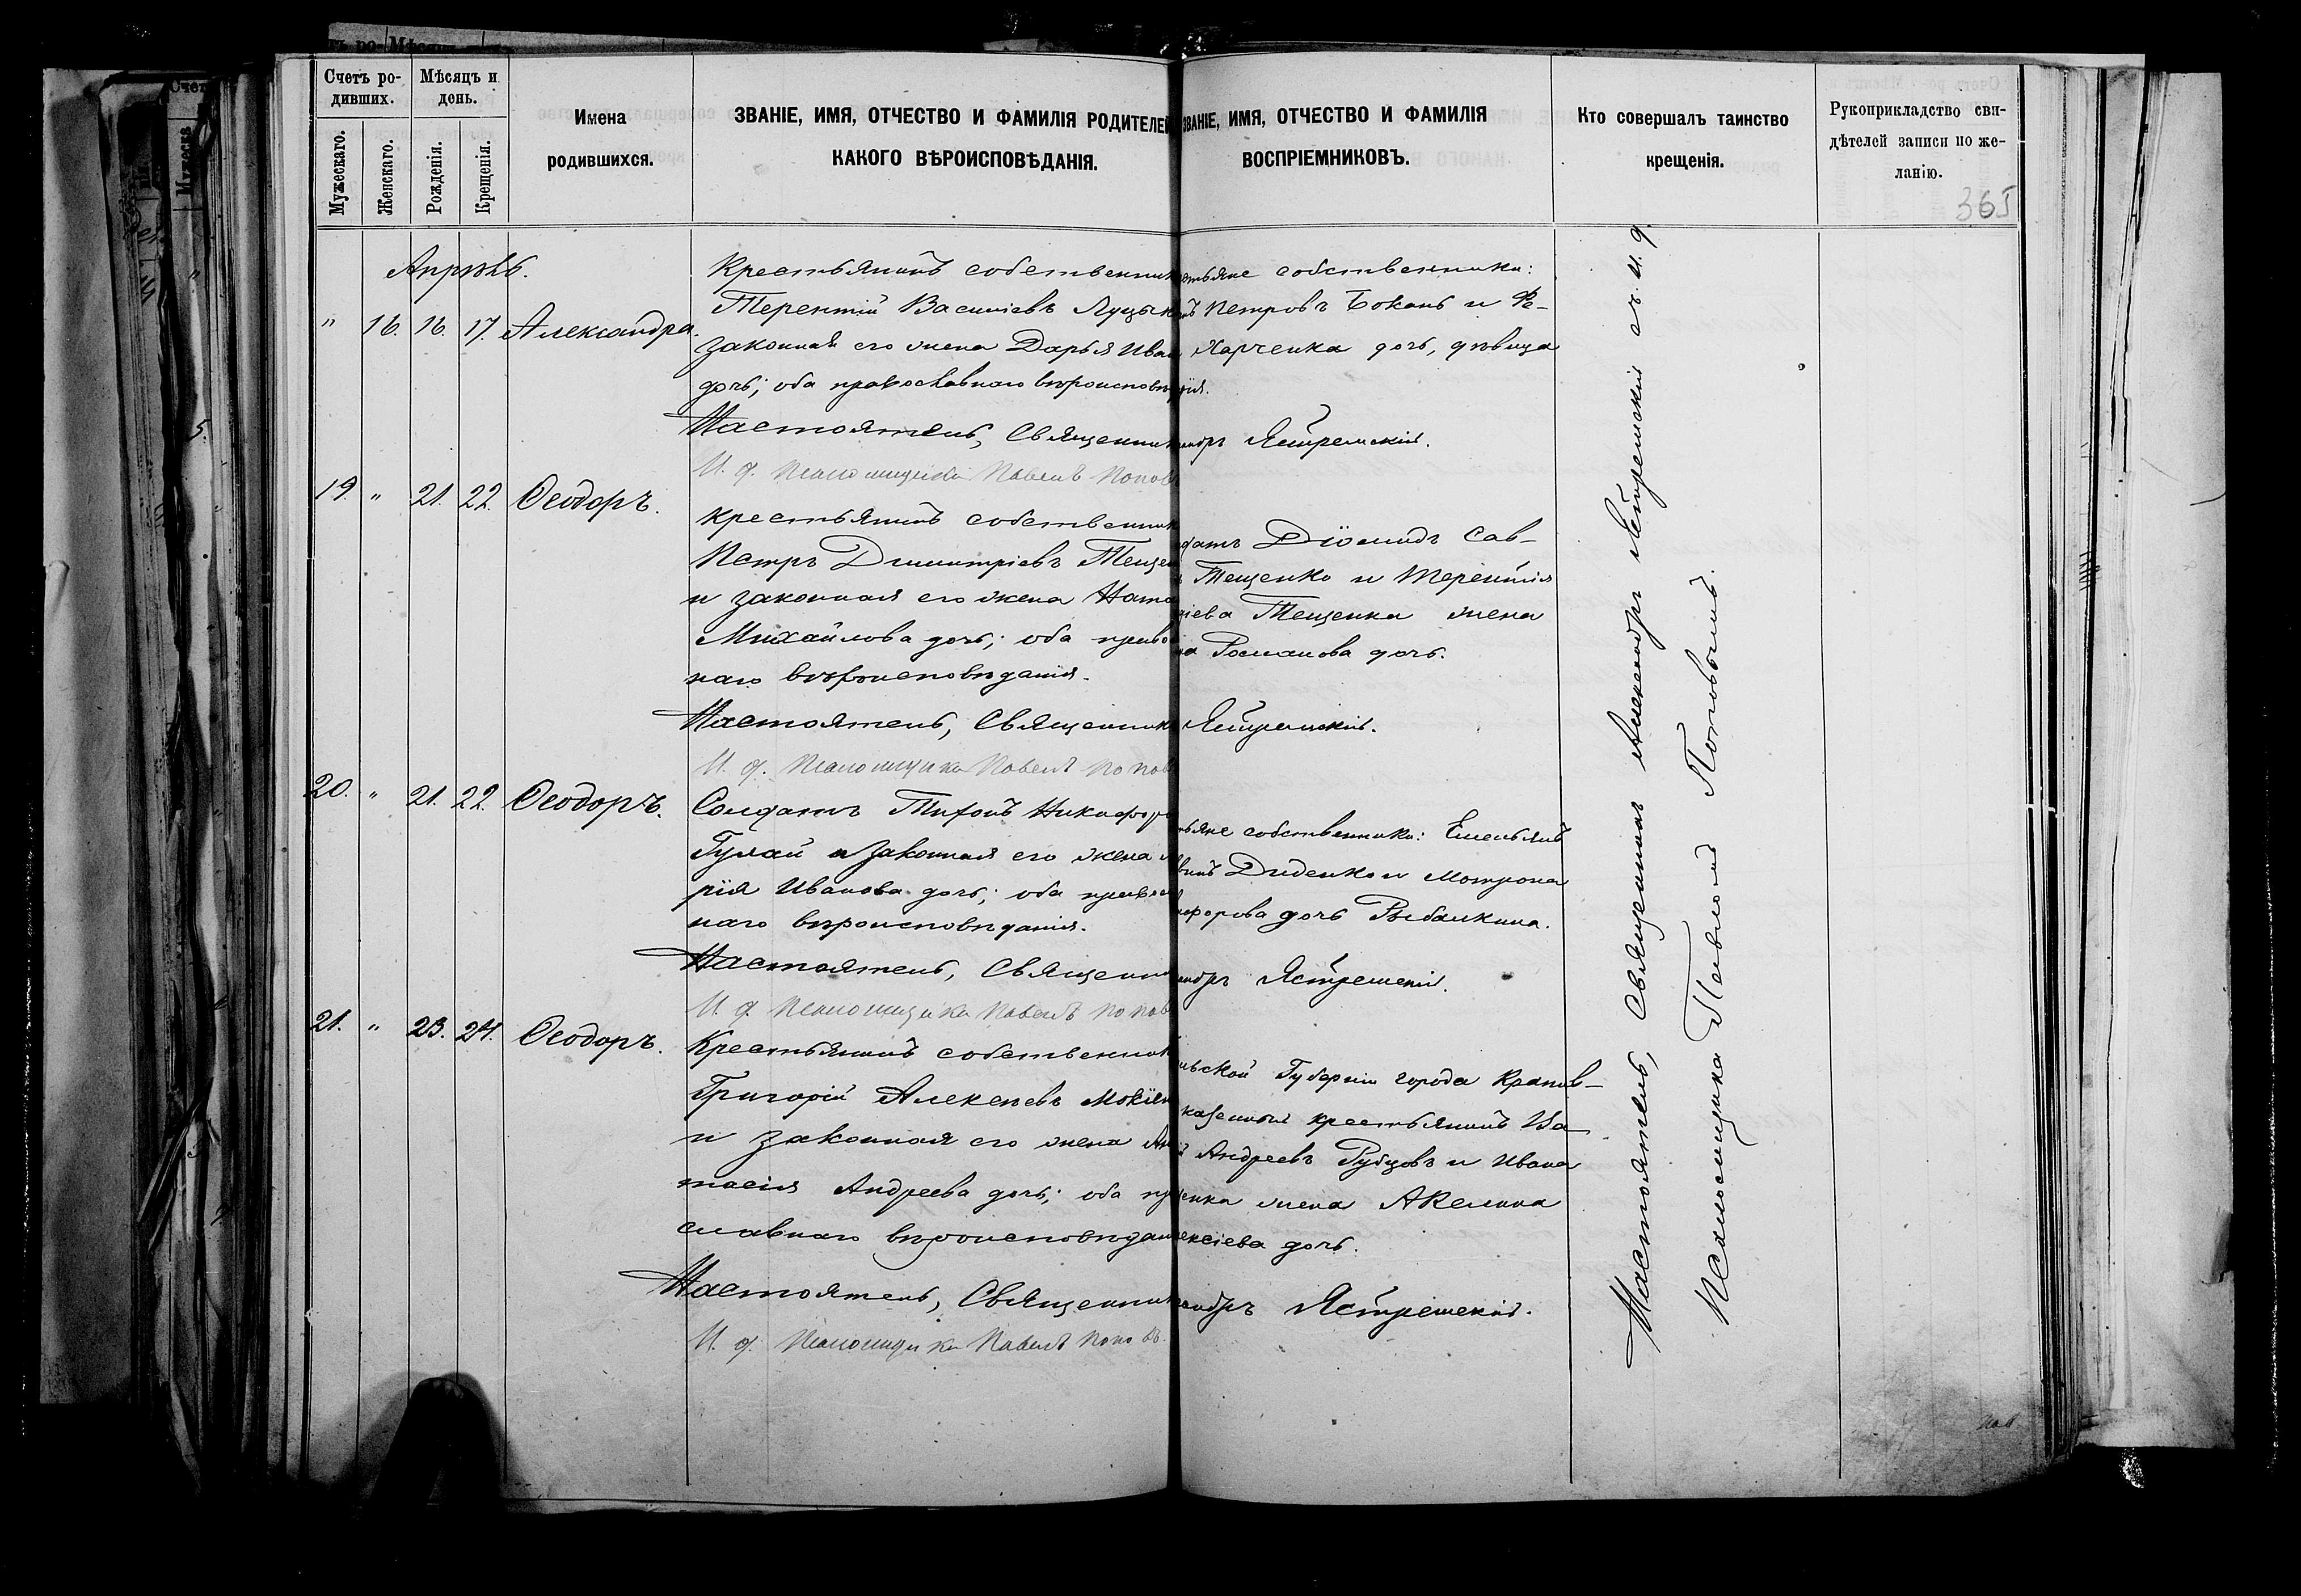 Счетъ ро-
дившихъ.
Мѣсяцъ и
день.
Мужескаго.
Женскаго.
Рожденія.
Крещенія.
Имена
родившихся.
ЗВАНІЕ, ИМЯ, ОТЧЕСТВО И ФАМИЛІЯ РОДИТЕЛЕЙ
КАКОГО ВѢРОИСПОВѢДАНІЯ.
ЗВАНІЕ, ИМЯ, ОТЧЕСТВО И ФАМИЛІЯ
ВОСПРІЕМНИКОВЪ.
Кто совершалъ таинство
крещенія.
Рукоприкладство сви-
дѣтелей записи по же-
ланію.
365
Апрѣль.
" 16. 16. 17. Александра.
Крестьянинъ собственник
Терентій Василіевъ
законная его жена Дарья Иван
дочь; оба православнаго вѣроисповѣ
Настоятель, Священник
И. д. Псаломщика Павелъ Попов
стьяне собственники:
Петровъ Боканъ и Ѳе-
Харченка дочь, дѣвица
андръ Ястремскій.
19. " 21. 22. Ѳеодоръ.
Крестьянинъ собственник
Петръ Димитріевъ Тещен
и законная его жена Ната
Михайлова дочь; оба право
наго вѣроисповѣданія.
Настоятель, Священник
И. д. Псаломщика Павелъ Попов
датъ Діомидъ Сав-
Тещенко и Терентія
іева Тещенка жена
на Романова дочь.
Ястремскій.
20. " 21. 22. Ѳеодоръ.
Солдатъ Миронъ Никифор
Гулай и законная его жена
рія Иванова дочь; оба правосл
наго вѣроисповѣданія.
Настоятель, Священни
И. д. Псаломщика Павелъ Попов
тьяне собственники: Емельянъ
Диденко и Мотрона
ифорова дочь Рыбалкина.
андръ Ястремскій.
21. " 23. 24. Ѳеодоръ.
Крестьянинъ собственник
Григорій Алексѣевъ Мокіен
и законная его жена Ан
тасія Андреева дочь; оба пр
славнаго вѣроисповѣдан
Настоятель, Священник
И. д. Псаломщика Павелъ Поповъ.
льской Губерніи города Крапив-
казенный крестьянинъ Ва-
й Андреевъ Рубцовъ и Ивана
енка жена Акелина
ексіева дочь.
андръ Ястремскій.
Настоятель, Священникъ Александръ Ястремскій съ и. д.
Псаломщика Павломъ Поповымъ.